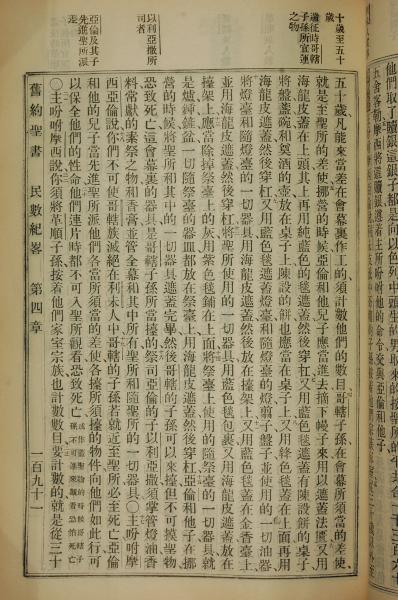 他們取了贖銀這銀子都是向以色列中頭生的男取來的按聖所的平
十歲至五十歲
遞征時哥轄子孫所宜運之物
以利亞撒所司者
亞倫及其子先進聖所派差
五十歲凡能來當差在會幕裏作工的須計數他們的數目哥轄子孫在會幕所須當的差使、
就是至聖所的差使、挪營的時候亞倫和他兒子應當進去摘下幔子來用以遮蓋法匱又用
海龍皮遮蓋在上頭其上再用純藍色的毯遮蓋然後穿扛又用藍色毯遮蓋有陳設餅的桌子
將盤盞碗和奠酒的壺放在桌子上陳設的餅也應當在桌子上又用絳色毯蓋在上面再用
海龍皮遮蓋然後穿扛又用藍色毯遮蓋燈臺和隨燈臺的燈剪子盤子並使用的一切油器
將燈臺和隨燈臺的一切器具用海龍皮遮蓋然後放在擡架上又用藍色毯蓋在金香臺上
並用海龍皮遮蓋然後穿扛將聖所使用的一切器具用藍色毯包裹又用海龍皮遮蓋放在
擡架上應當除掉祭臺上的灰用紫色毯鋪在上面將祭臺上使用的隨祭臺的一切器具就
是爐鍤盆一切隨祭臺的器皿都放在祭臺上使用海龍皮遮蓋然後穿扛亞倫和他子在挪
營的時候將聖所和其中的一切器具遮蓋完畢然後哥轄的子孫可以來擡但不可摸聖物
恐致死亡這會幕裏的器具是哥轄子孫所當擡的祭司亞倫的子以利亞撒須掌管燈油香
料常獻的素祭之物和香膏並管全幕和其中所有聖所和隨聖所的一切器具○主吩咐摩
西亞倫說你們不可使哥轄族滅絕在利未人中哥轄的子孫若就近至聖所必至死亡亞倫
和他的兒子當先進聖所派他們各當所須當的差使各擡所須擡的物件向他們如此行可
以保全他們的性命他們連片時都不可入聖所觀看恐致死亡
○主吩咐摩西說你須將革順子孫接着他們家室宗族也計數數目要計數的就是從三十
舊約聖書 民數紀畧 第四章 一百九十一